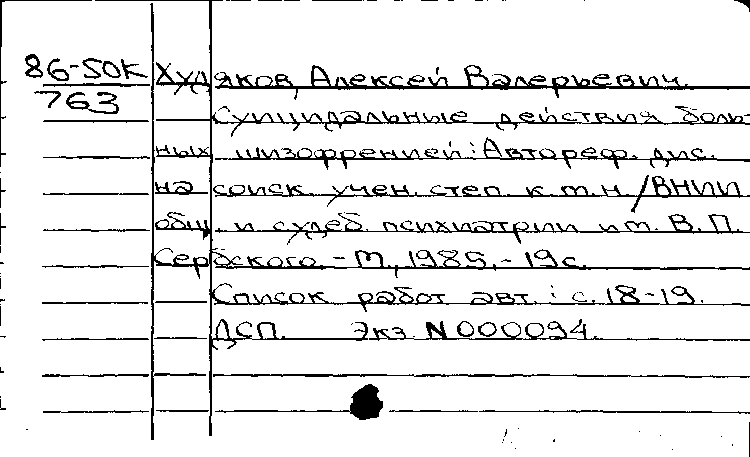 86-50К Худяков, Алексей Валерьевич.
763 Суицидальные действия боль-
ных шизофренией: Автореф. дис.
на соиск. учен. степ. к.м.н. / ВНИИ
общ. и судеб. психиатрии им. В.П.
Сербского. - М., 1985. - 19 с.
Список работ авт.: с. 18-19.
ДСП. Экз N 000094.